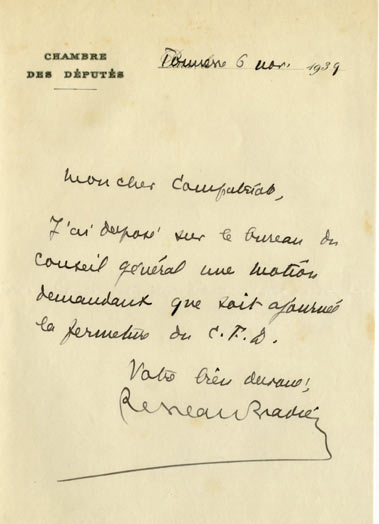 CHAMBRE
DES DÉPUTÉS
6 nov. 1939
Mon cher Compatriote,
J'ai déposé sur le bureau du
Conseil général une motion
demandant que soit ajournée
la fermeture du C.F.D.
Votre bien dévoué,